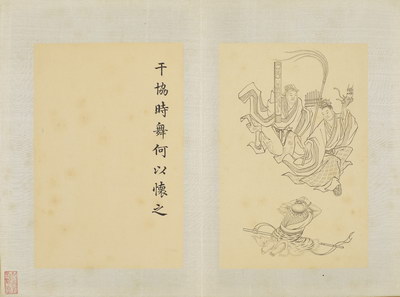 干協時舞何以懷之